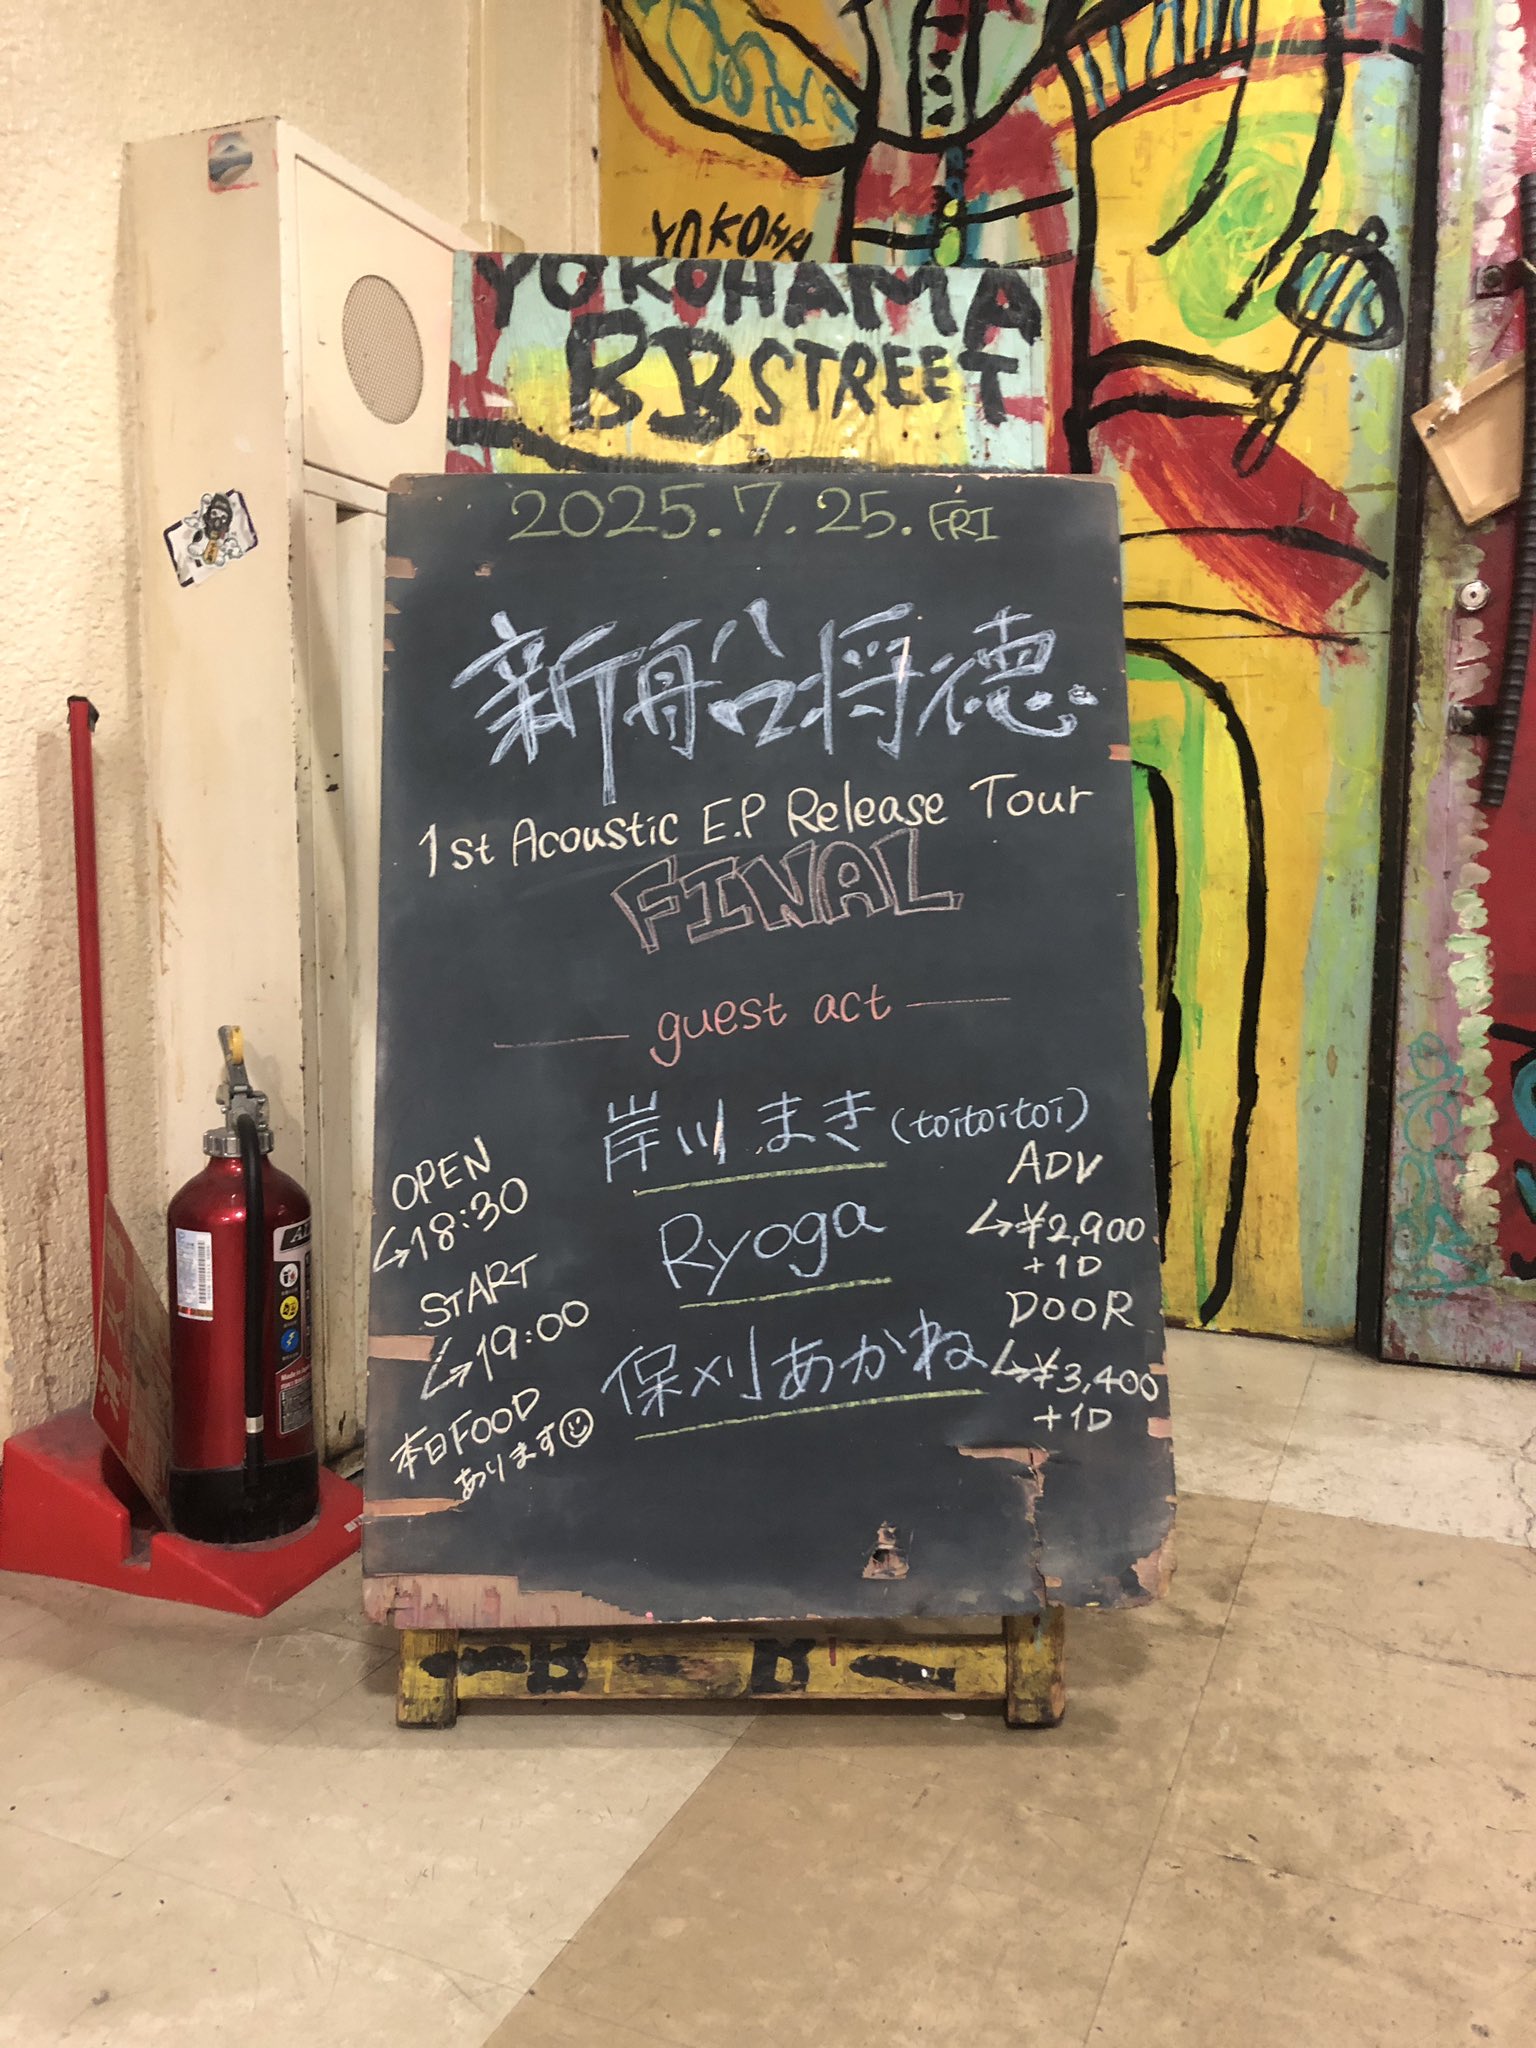 YOKOHAMA
YOKOHAMA
BB STREET
2025.7.25.FRI
新船将徳
1st Acoustic E.P Release Tour
FINAL
guest act
岸川まき(toitoitoi)
Ryoga
保刈あかね
OPEN
↳18:30
START
↳19:00
本日FOOD
あります☺
ADV
↳¥2,900
+1D
DOOR
↳¥3,400
+1D